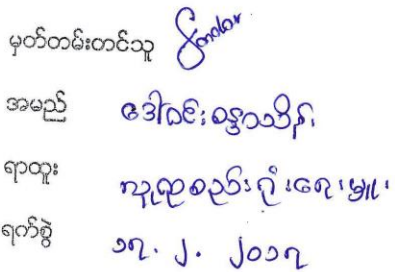 မှတ်တမ်းတင်သူ
အမည် ဒေါ်ဝင်းစန္ဒာသိန်း
ရာထူး လူစုစည်းရုံးရေးမှူး
ရက်စွဲ ၁၇. ၂. ၂၀၁၇